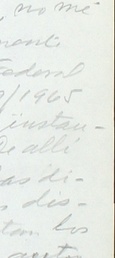 , no me
mente
Federal
/1965
instau-
De allí
las di-
s dis-
tan los